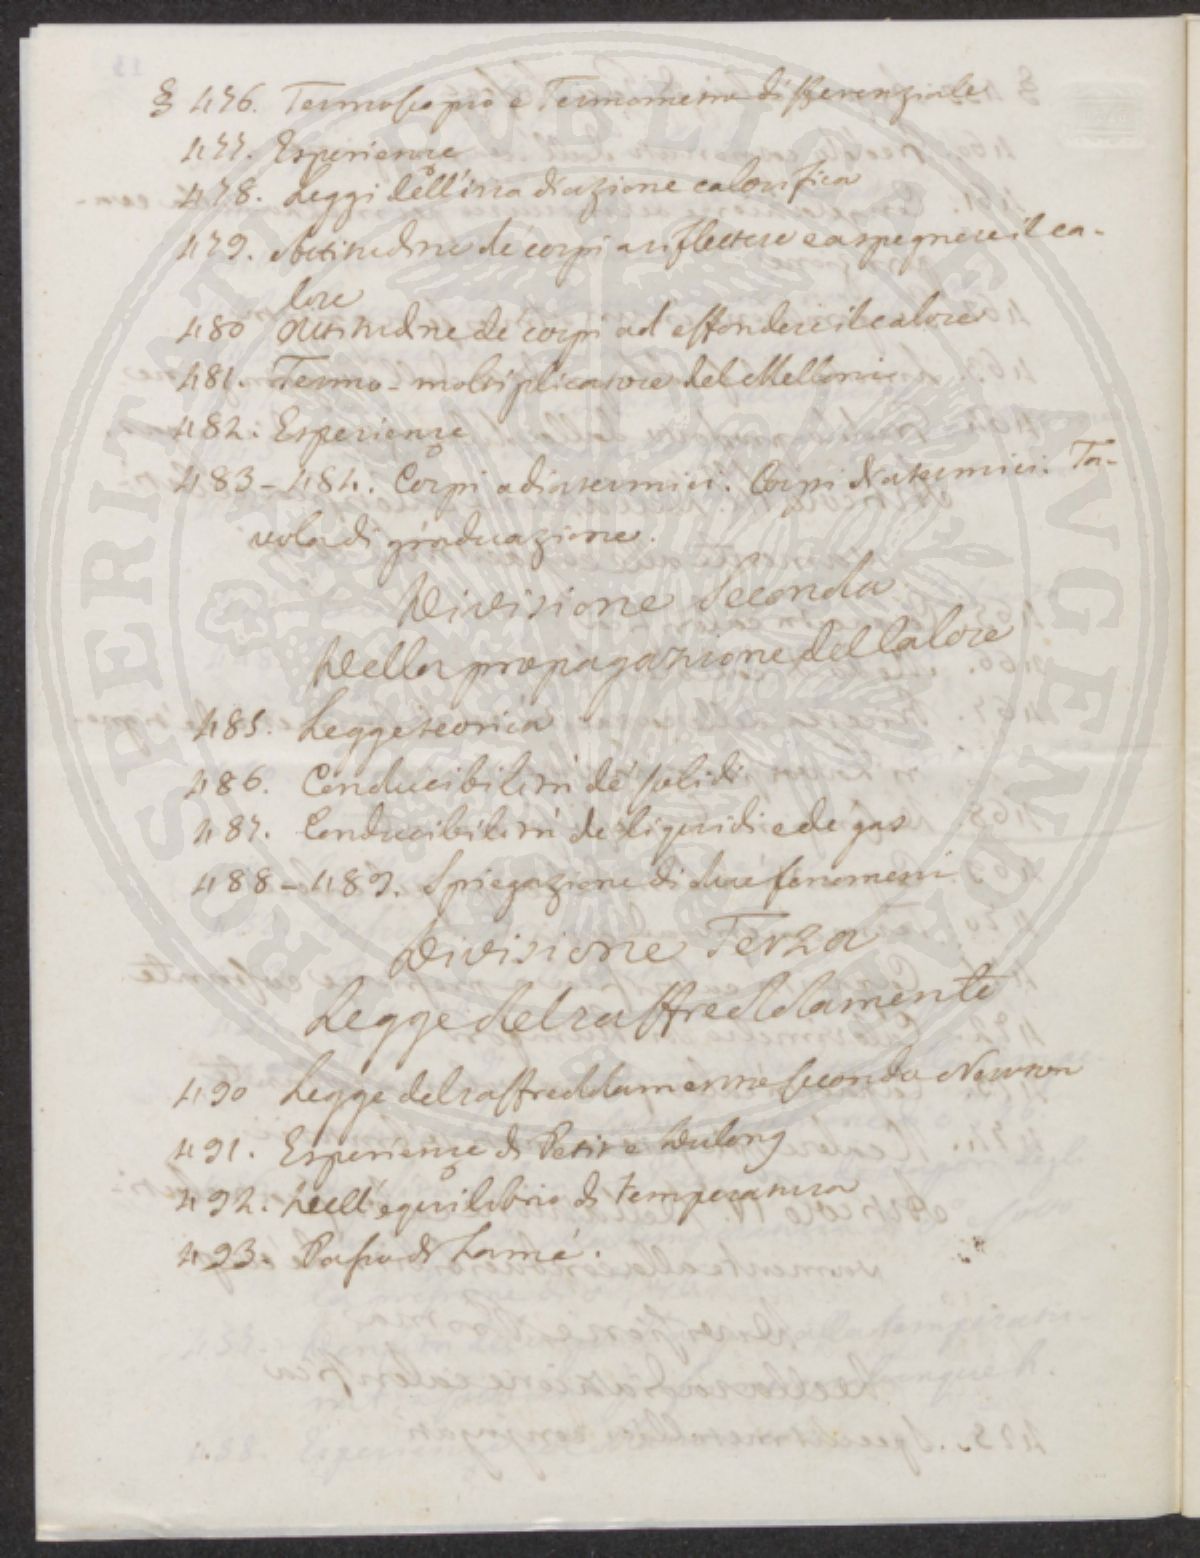 § 476. Termoscopio e Termometro differenziale
477. Esperienze
478. Leggi dell'irradiazione calorifica
479. Attitudine de' corpi a riflettere e a spegnere il ca-
lore
480 Attitudine de' corpi ad effondere il calore
481. Termo-moltiplicatore del Melloni
482. Esperienze
483-484. Corpi adiatermici. Corpi diatermici. Ta-
vola di graduazione.
Divisione Seconda
Della propagazione del Calore
485. Legge teorica
486. Conducibilità de' solidi
487. Conducibilità de' liquidi e de' gas
488-489. Spiegazione di due fenomeni
Divisione Terza
Legge del raffreddamento
490 Legge del raffreddamento secondo Newton
491. Esperienze di Petit e Dulong
492. Dell'equilibrio di temperatura
493. Passo di Lamé.
PROSPERITATI PVBLICAE AVGENDAE